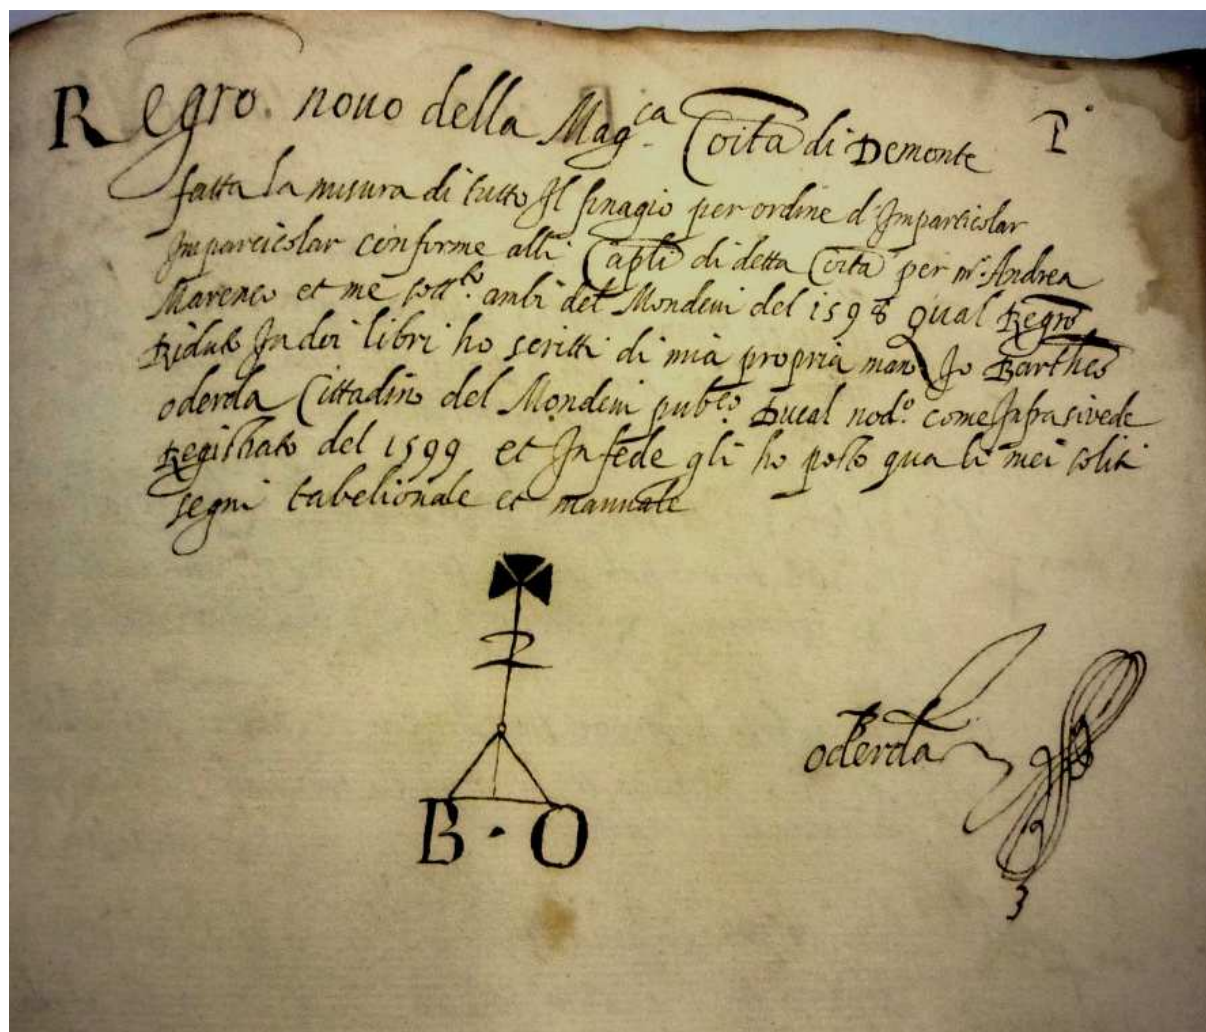 Regro. nouo della Mag.ca Coita di Demonte P.o
fatta la misura di tutto Il finagio per ordine d'Imparticolar
Imparticolar conforme alli Capli di detta Coita per mr. Andrea
Marenco et me sott.to ambi del Mondeui del 1598 qual Regro
Riduto In doi libri ho scritti di mia propria mano Io Bartheo
oderda Cittadino del Mondeui pub.co Ducal nod.o come Infra si vede
Registrato del 1599 et In fede gli ho posto qua li mei soliti
segni tabelionale et mannale
B · O
oderda